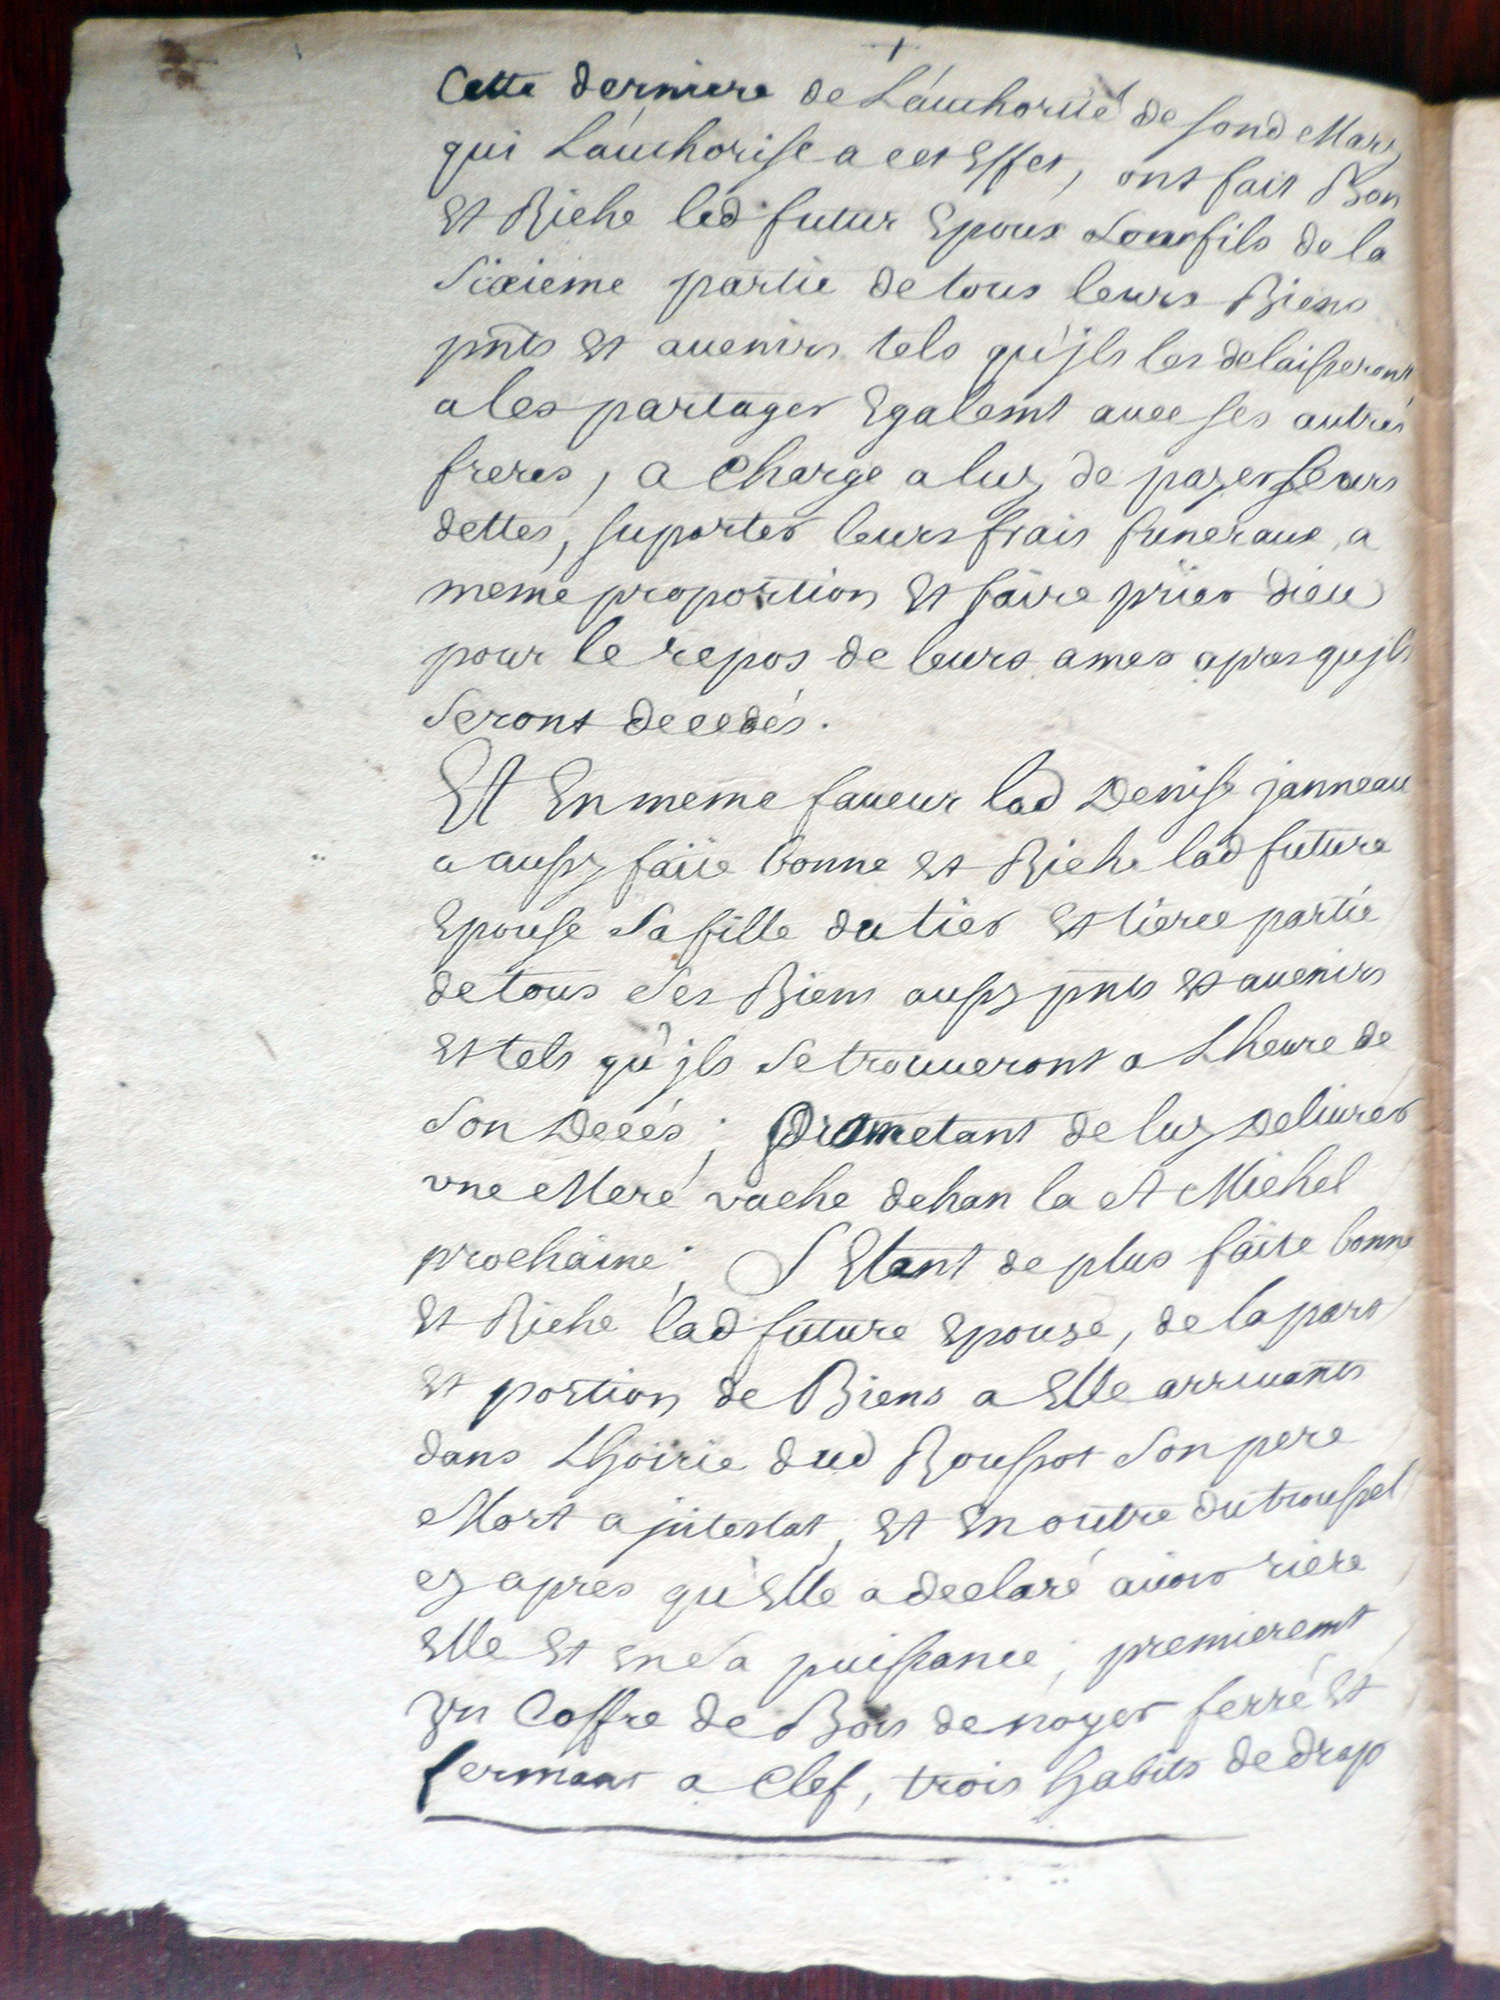 Cette derniere de L'authorité de sond Mary
qui L'authorise a cet Effet, ont fait Bon
Et Riche led futur Epoux Leur fils de la
Sixieme partie de tous leurs Biens
pnts Et auenirs tels qu'jls les delaisseront
a les partager Egalemt auec ses autres
freres, a Charge a luy de payer leurs
dettes, suporter leurs frais funeraux a
meme proportion Et faire prier dieu
pour le repos de leurs ames apres qujls
Seront decedés.
Et En meme faueur lad Denise janneau
a aussy faite bonne Et Riche lad future
Epouse Sa fille du tier Et tierce partie
de tous Ses Biens aussy pnts Et auenirs
Et tels qu'jls Se trouueront a Lheure de
Son Decés; prometant de luy Deliurer
vne Mere vache dehan la St Michel
prochaine; S'Etant de plus faite bonne
Et Riche lad future Epouse, de la part
Et portion de Biens a Elle arriuants
dans Lhoirie dud Roussot Son pere
Mort ajntestat, Et En outre du troussel
cy apres qu'Elle a declaré auoir riere
Elle Et En Sa puissance; premieremt
Vn Coffre de Bois de noyer ferré Et
fermant a Clef, trois habits de drap